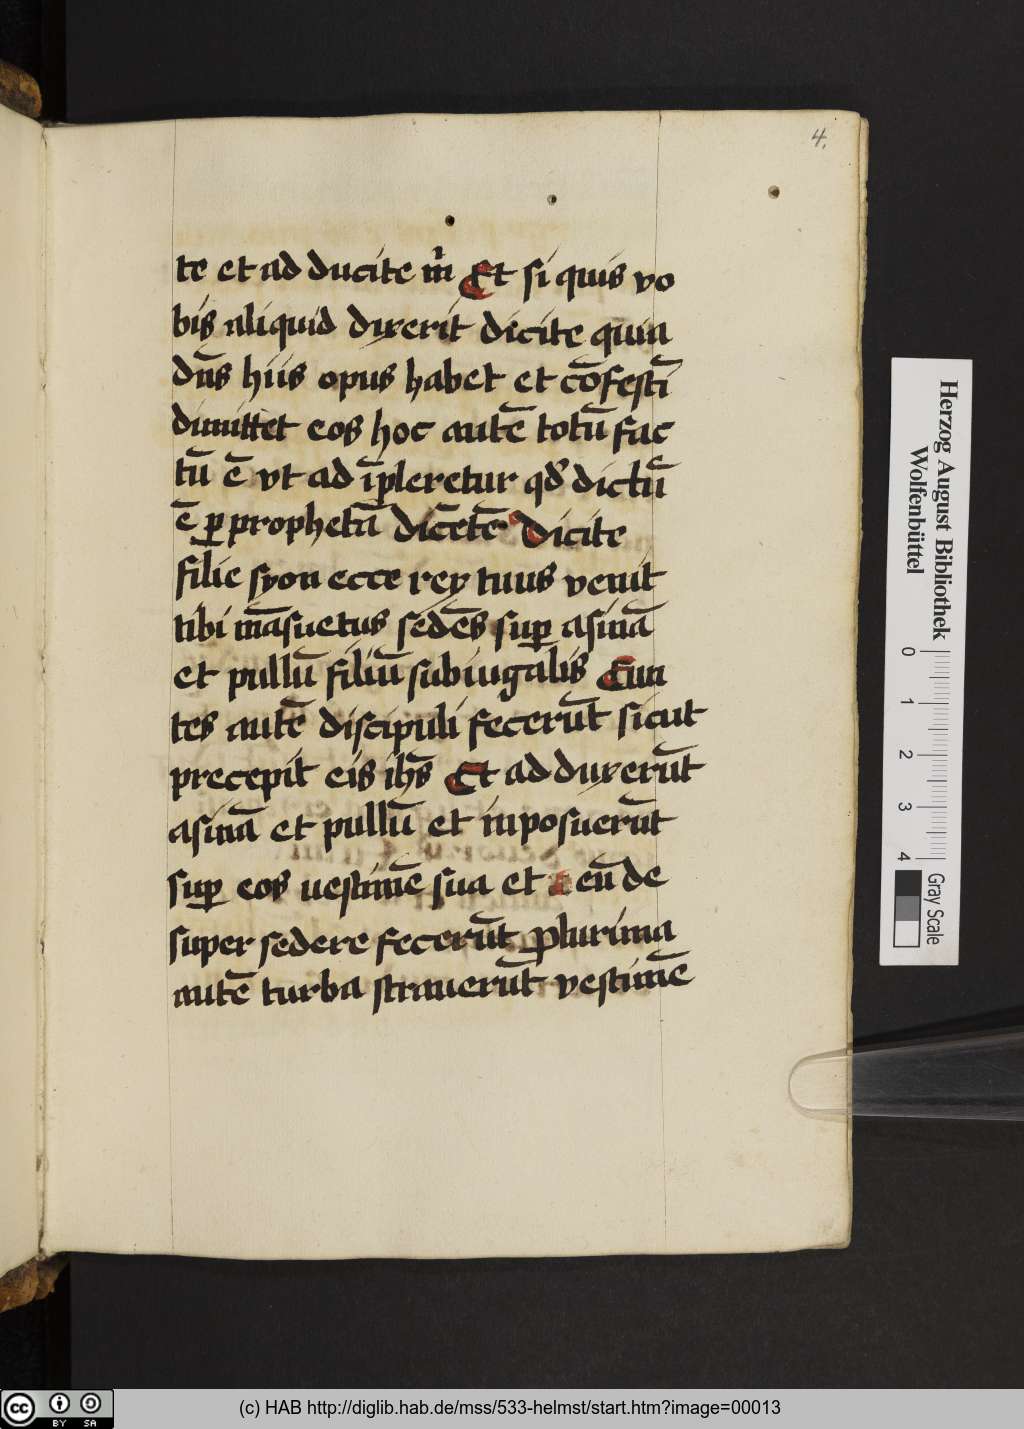 4.
te et ad ducite m̄ Et si quis vo
bis aliquid dixerit dicite quia
dn̄s hiis opus habet et cōfestī
dimittet eos hoc autē totū fac
tū ē vt ad īpleretur qd̓ dictū
ē ꝑ prophetā dicētē Dicite
filie syon ecce rex tuus venit
tibi māsuetus sedēs suꝑ asinā
et pullū filiū subiugalis Eun
tes autē discipuli fecerūt sicut
precepit eis ihs̄ Et ad duxerūt
asinā et pullū et inposuerūt
suꝑ eos uestimē sua et eū de
super sedere fecerūt Plurima
autē turba strauerūt vestimē
Herzog August Bibliothek
Wolfenbüttel
0 1 2 3 4
Gray Scale
cc BY SA
(c) HAB http://diglib.hab.de/mss/533-helmst/start.htm?image=00013